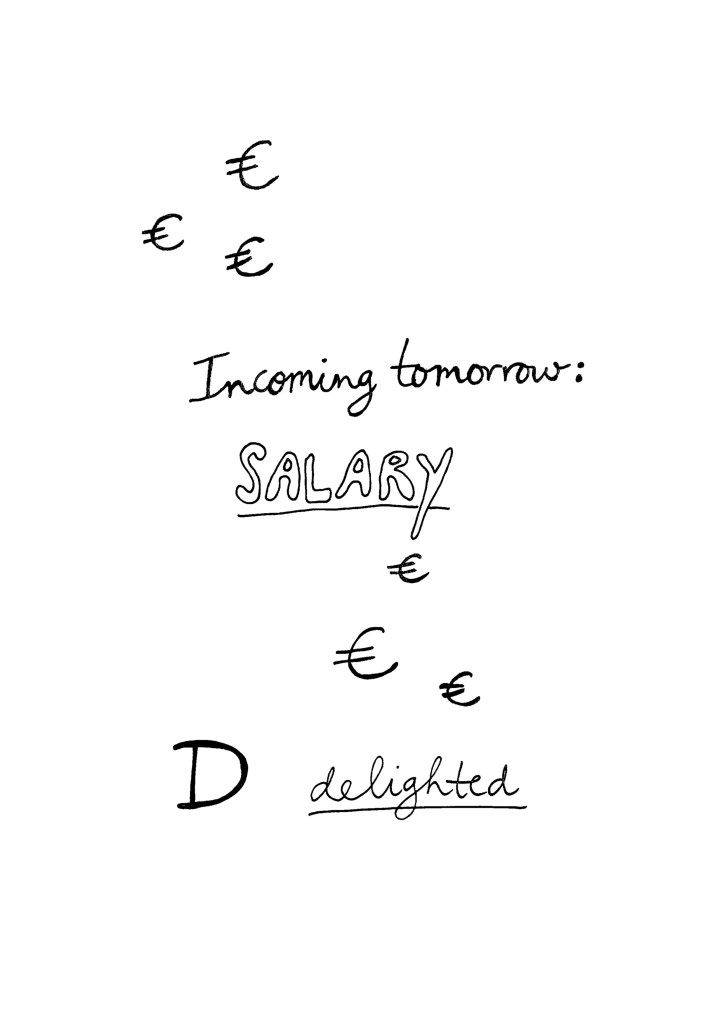 €
€
€
Incoming tomorrow:
SALARY
€
€
€
D delighted